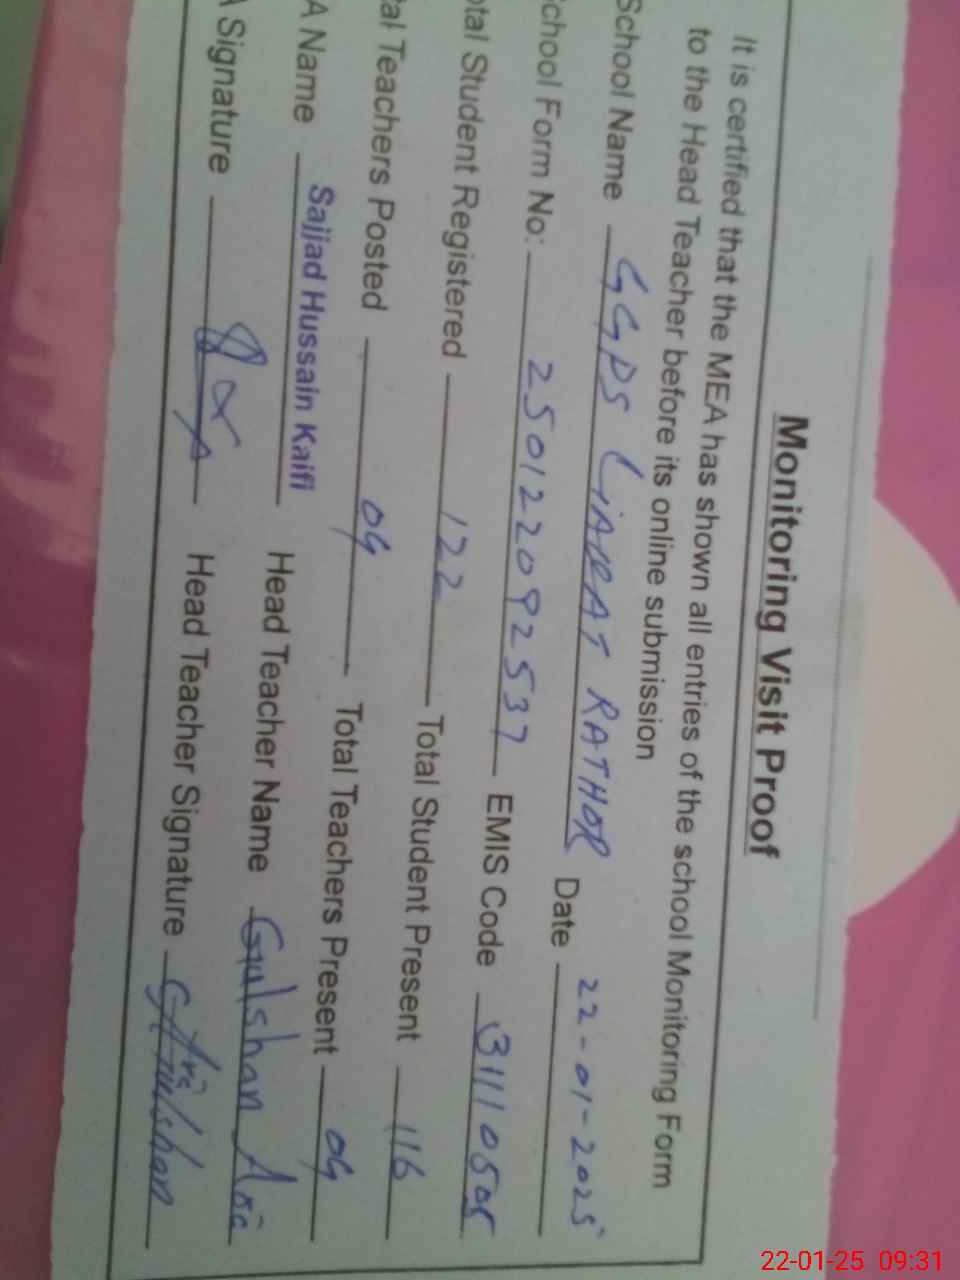 Monitoring Visit Proof
It is certified that the MEA has shown all entries of the school Monitoring Form
to the Head Teacher before its online submission
School Name GGPS LIAQAT RATHOR Date 22-01-2025
School Form No: 250122092537 EMIS Code 31110505
otal Student Registered 122 Total Student Present 116
tal Teachers Posted 04 Total Teachers Present 04
A Name Sajjad Hussain Kaifi Head Teacher Name Gulshan Ara
A Signature Head Teacher Signature Gulshan
22-01-25 09:31